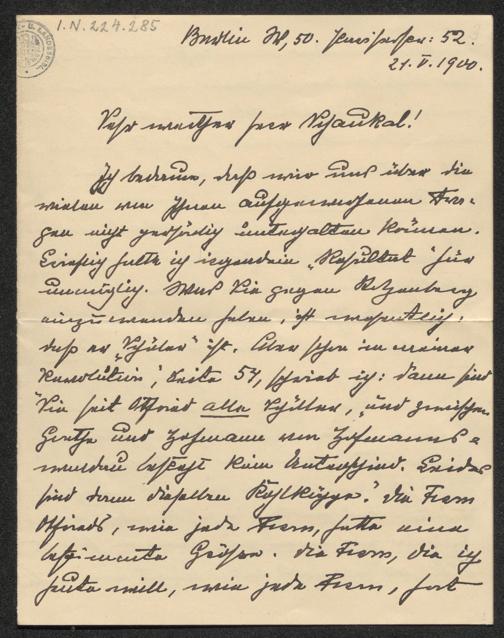 I.N. 224.285
Berlin W, 50. : 52.
21. V. 1900.
Sehr werther Herr Schaukal!
Ich bedaure, daß wir uns über die
vielen von Ihnen aufgeworfenen Fra-
gen nicht persönlich unterhalten können.
Brieflich halte ich irgendein „Resultat" für
unmöglich. Was Sie gegen
einzuwenden haben, ist wesentlich,
daß er „Schüler" ist. Aber schon in meiner
Revolution, Seite 54, schrieb ich: dann sind
Sie seit Otfried alle Schüler, „und zwischen
Goethe und Hofmann von Hofmanns-
waldau besteht kein Unterschied. Beides
sind dann dieselben Kohlköppe." Die Form
Otfrieds, wie jede Form, hatte eine
bestimmte Größe. Die Form, die ich
heute will, wie jede Form, hat